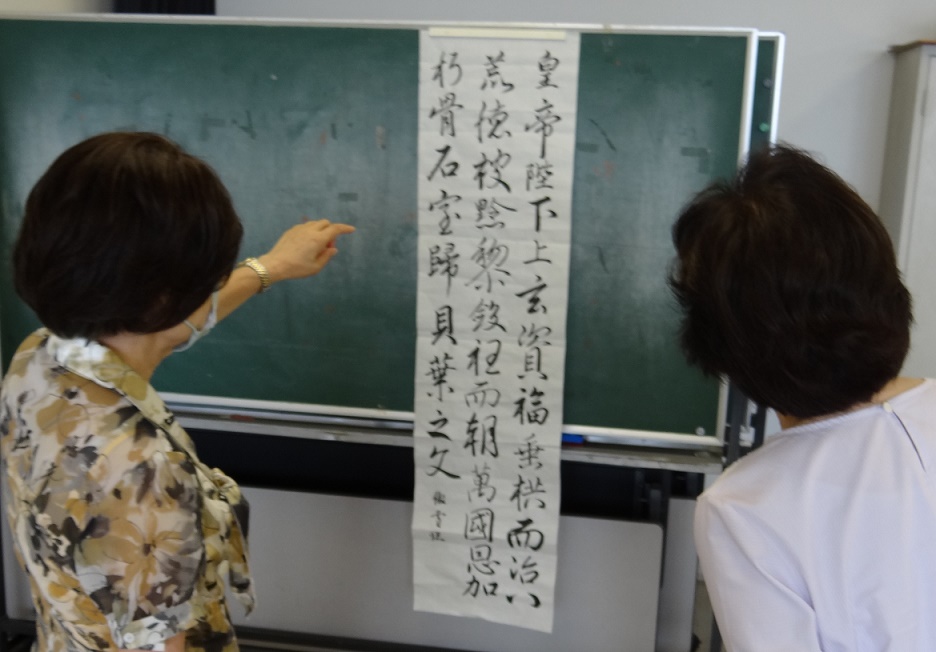 皇帝陛下上玄資福垂拱而治八
荒徳被黔黎斂衽而朝萬國恩加
朽骨石室歸貝葉之文